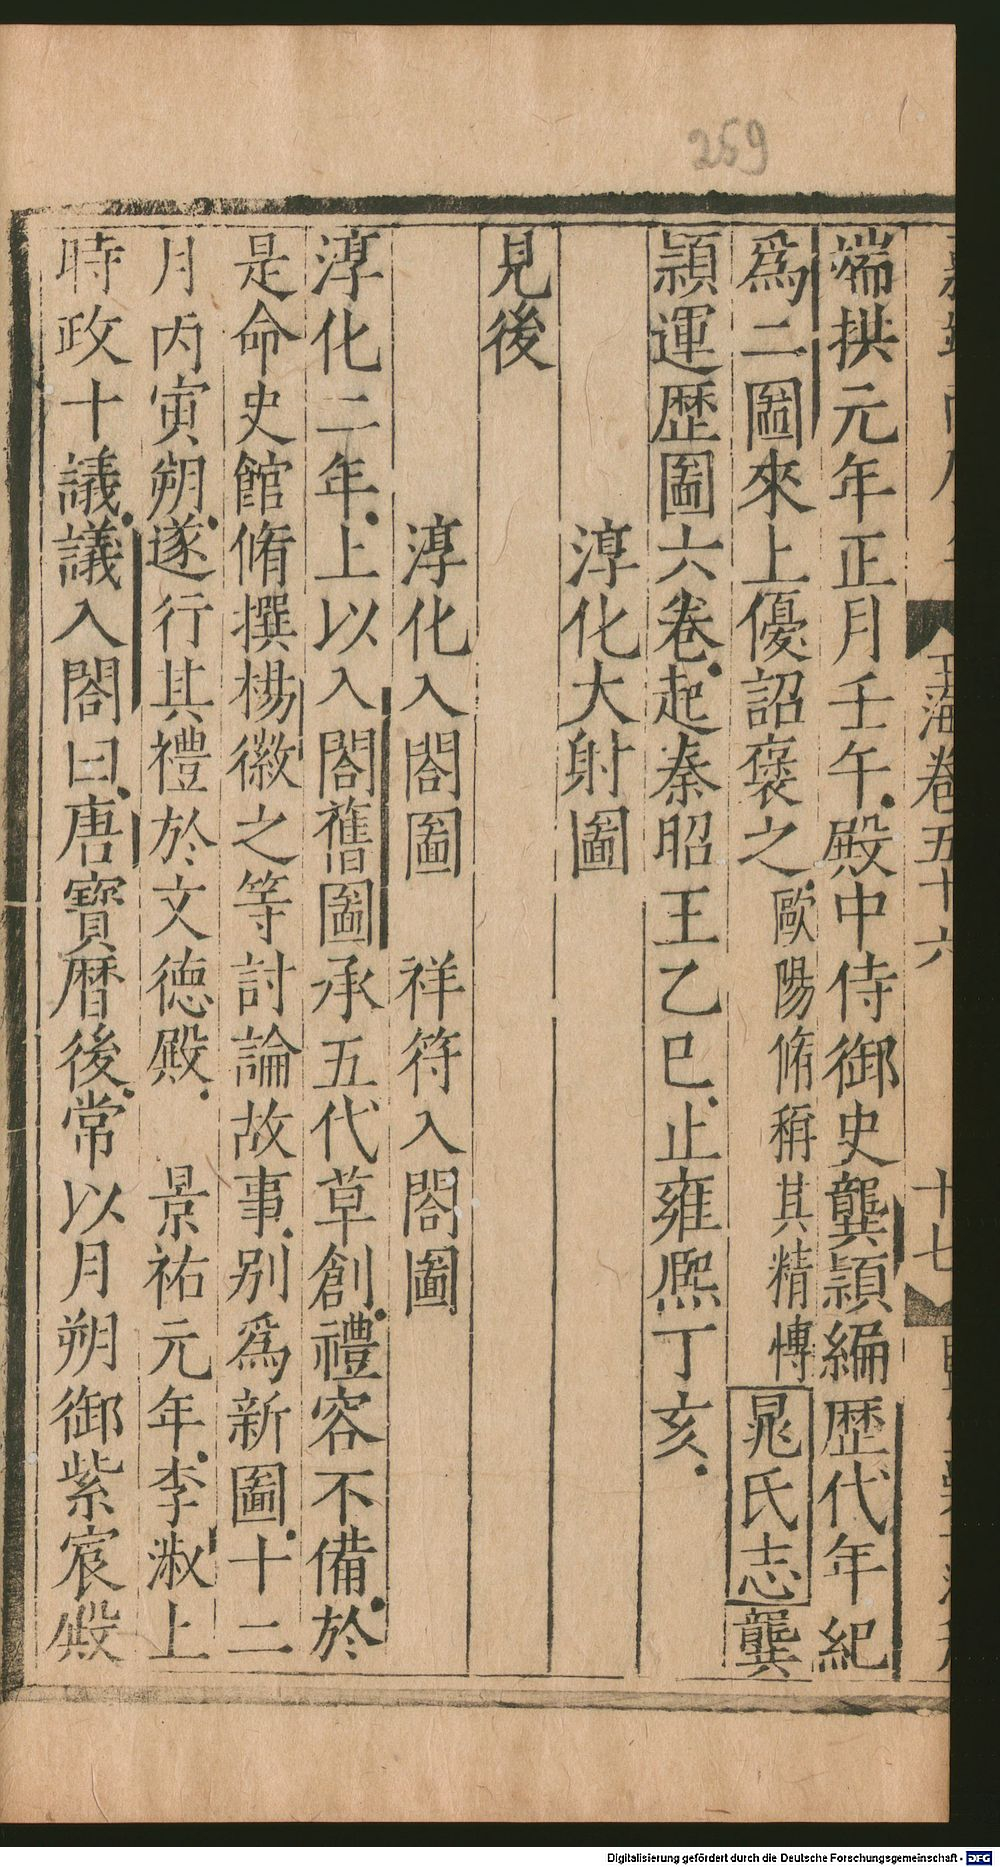 259
玉海卷五十六
十七
端拱元年正月壬午殿中侍御史龔頴編歷代年紀
爲二圖來上優詔褒之歐陽脩稱其精慱晁氏志龔
頴運歷圖六卷起秦昭王乙巳止雍熙丁亥
淳化大射圖
見後
淳化入閤圖　祥符入閤圖
淳化二年上以入閤舊圖承五代草創禮容不備於
是命史館脩撰楊徽之等討論故事別爲新圖十二
月丙寅朔遂行其禮於文德殿　景祐元年李淑上
時政十議議入閤曰唐寶曆後常以月朔御紫宸殿
Digitalisierung gefördert durch die Deutsche Forschungsgemeinschaft - DFG